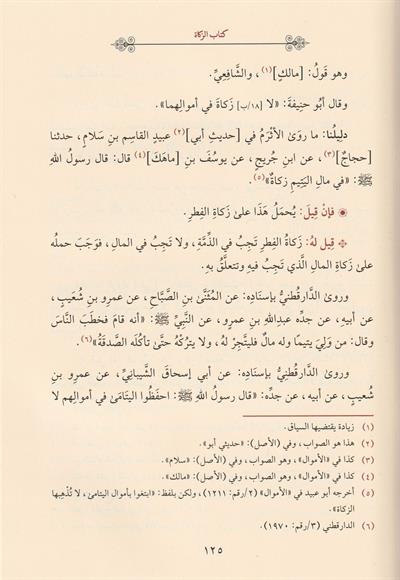 كتاب الزكاة
وهو قَولُ: [مالكٍ](١)، والشَّافِعِيِّ.
وقال أبُو حنِيفةَ: «لا [١٨/ب] زَكاةَ في أموالِهما».
دلِيلُنا: ما روَىٰ الأثرَمُ في [حديثِ أبي](٢) عبيدِ القاسِمِ بنِ سَلَامٍ، حدثنا
[حجاجٌ](٣)، عن ابنِ جُريجٍ، عن يوسُفَ بنِ [ماهَكَ](٤) قال: قال رسولُ اللهِ
ﷺ: «في مالِ اليَتِيمِ زكاةٌ»(٥).
فإنْ قِيلَ: يُحمَلُ هَذَا علىٰ زكاةِ الفِطرِ.
قِيل لهُ: زَكاةُ الفِطرِ تَجِبُ في الذِّمَّةِ، ولا تَجِبُ في المالِ، فوَجَبَ حملُه
علىٰ زَكاةِ المالِ الَّذي تَجِبُ فيهِ وتتعلَّقُ بهِ.
وروىٰ الدَّارقطنيُّ بإسنادِه: عن المُثَنَّىٰ بنِ الصَّبَّاحِ، عن عمرِو بنِ شُعَيبٍ،
عن أبيهِ، عن جدِّه عبدِاللهِ بنِ عمرٍو، عن النَّبيِّ ﷺ: «أنه قامَ فخطَبَ النَّاسَ
وقال: من وَلِيَ يتيمًا ولَه مالٌ فليتَّجِرْ لهُ، ولا يترُكْهُ حتَّىٰ تأكُلَه الصَّدقَةُ»(٦).
وروىٰ الدَّارقُطنيُّ بإسنادِه: عن أبي إسحاقَ الشَّيبانِيِّ، عن عمرِو بنِ
شُعيبٍ، عن أبيه، عن جدِّه: «قال رسولُ اللهِ ﷺ: احفَظُوا اليَتامَىٰ في أموالِهِم لا
(١) زيادة يقتضيها السياق.
(٢) هذا هو الصواب، وفي (الأصل): «حديثي أبو».
(٣) كذا في «الأموال»، وهو الصواب، وفي (الأصل): «سلام».
(٤) كذا في «الأموال»، وهو الصواب، وفي (الأصل): «مالك».
(٥) أخرجه أبو عبيد في «الأموال» (٢/رقم: ١٢١١)، ولكن بلفظ: «ابتغوا بأموال اليتامىٰ، لا تُذْهِبها
الزكاة».
(٦) الدارقطني (٣/رقم: ١٩٧٠).
١٢٥